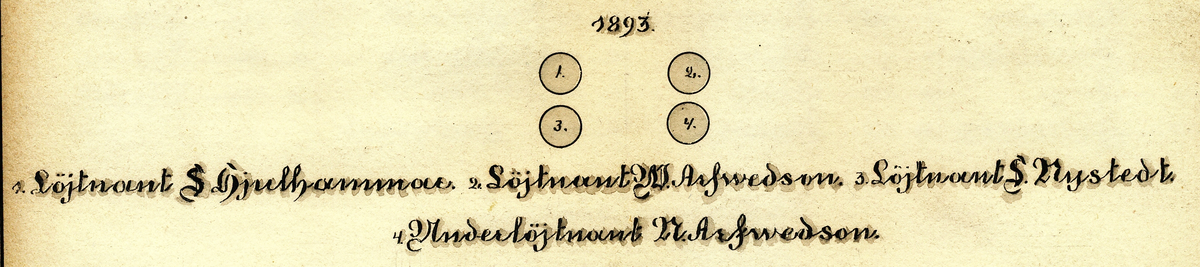 1893.
1. 2.
3. 4.
1. Löjtnant S Hjelhammar. 2. Löjtnant W. Arfwedson. 3. Löjtnant S. Nystedt.
4. Underlöjtnant N. Arfwedson.